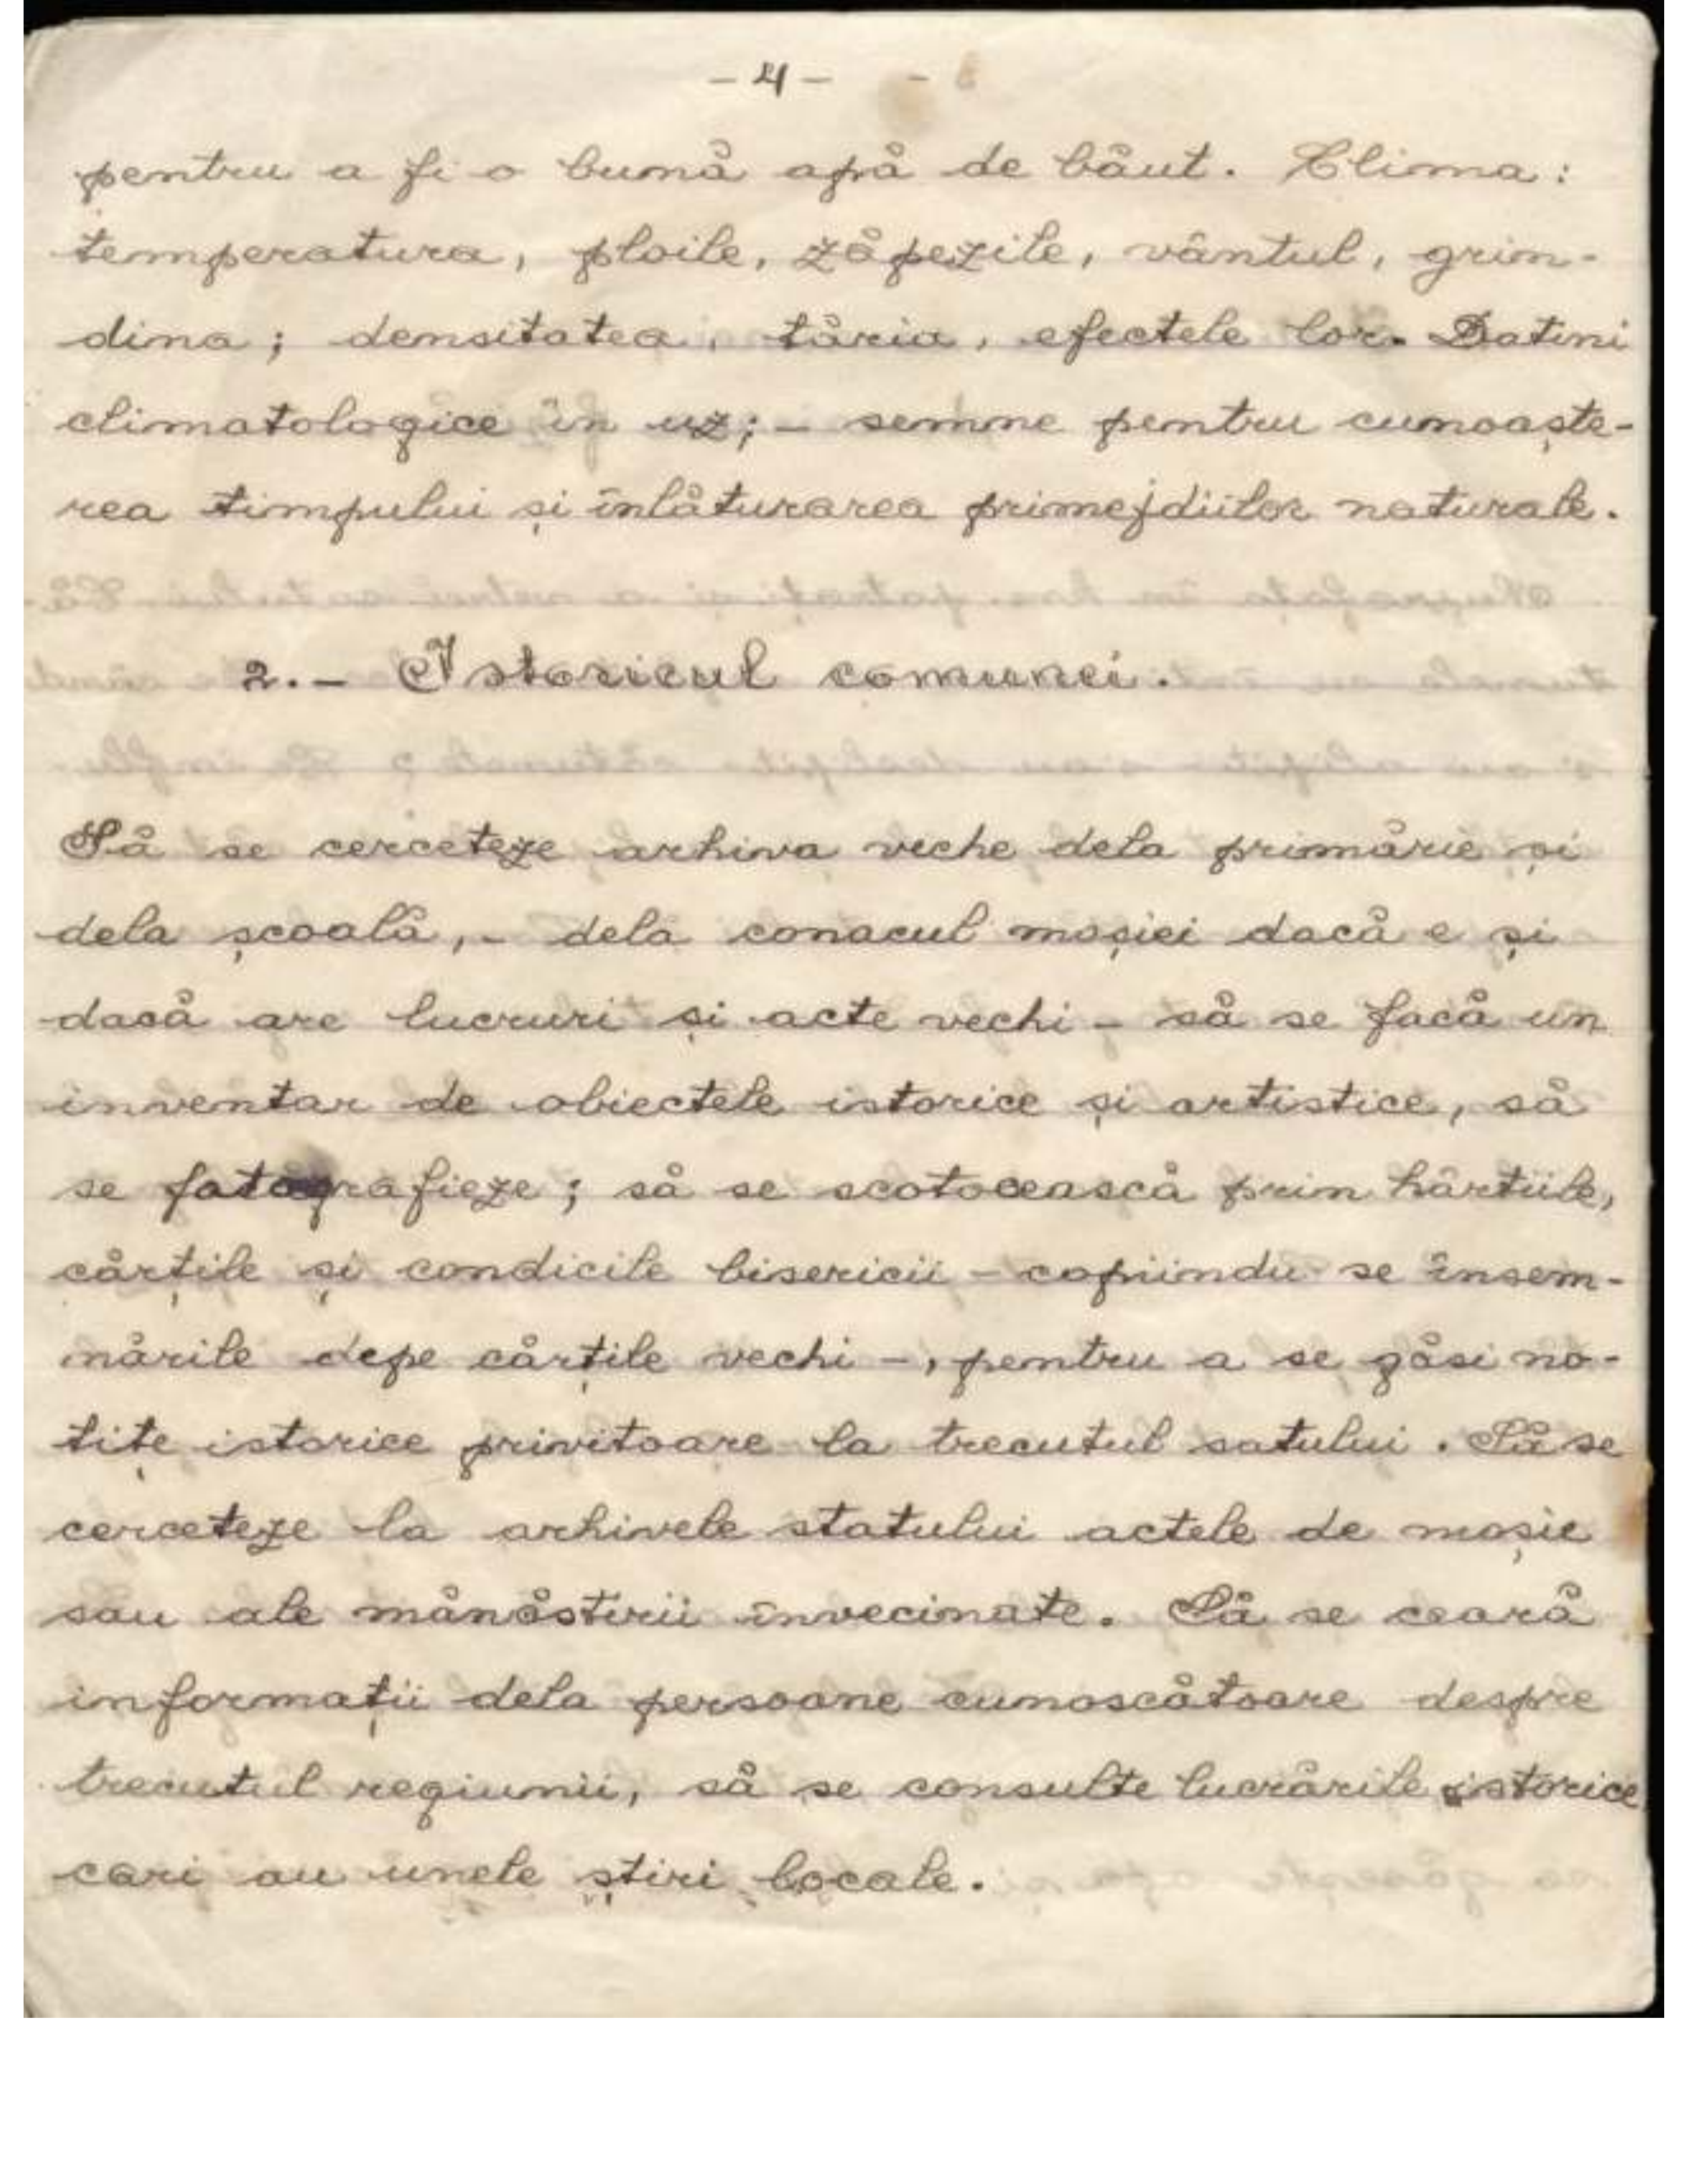 - 4 -
pentru a fi o bună apă de băut. Clima:
temperatura, ploile, zăpezile, vântul, grin-
dina; densitatea, tăria, efectele lor. Datini
climatologice în uz; - semne pentru cunoaște-
rea timpului și înlăturarea primejdiilor naturale.
2. - Istoricul comunei.
Să se cerceteze arhiva veche dela primărie și
dela școală, - dela conacul moșiei dacă e și
dacă are lucruri și acte vechi - să se facă un
inventar de obiectele istorice și artistice, să
se fotografieze; să se scotocească prin hârtiile,
cărțile și condicile bisericii - copiindu se însem-
nările depe cărțile vechi -, pentru a se găsi no-
tițe istorice privitoare la trecutul satului. Să se
cerceteze la arhivele statului actele de moșie
sau ale mănăstirii învecinate. Să se ceară
informații dela persoane cunoscătoare despre
trecutul regiunii, să se consulte lucrările istorice
cari au unele știri locale.